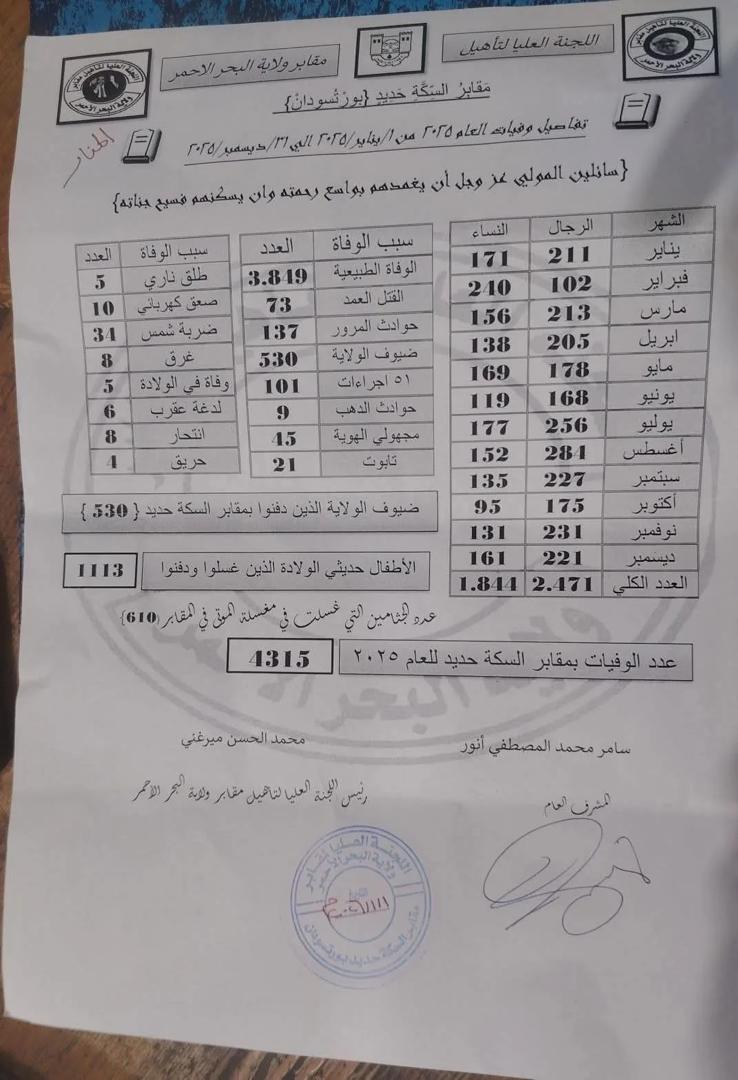 اللجنة العليا لتأهيل
مقابر ولاية البحر الاحمر
مَقابرُ السَكَّةِ حَديدِ {بورْتْسودانْ}
تفاصيل وفيات العام ٢٠٢٥ من ١/يناير/٢٠٢٥ الي ٣١/ديسمبر/٢٠٢٥
{سائلين المولي عز وجل أن يغمدهم بواسع رحمته وان يسكنهم فسيح جناته}
الشهر الرجال النساء
يناير 211 171
فبراير 102 240
مارس 213 156
ابريل 205 138
مايو 178 169
يونيو 168 119
يوليو 256 177
أغسطس 284 152
سبتمبر 227 135
أكتوبر 175 95
نوفمبر 231 131
ديسمبر 221 161
العدد الكلي 2.471 1.844
سبب الوفاة العدد
الوفاة الطبيعية 3.849
القتل العمد 73
حوادث المرور 137
ضيوف الولاية 530
٥١ اجراءات 101
حوادث الدهب 9
مجهولي الهوية 45
تابوت 21
سبب الوفاة العدد
طلق ناري 5
صعق كهربائي 10
ضربة شمس 34
غرق 8
وفاة في الولادة 5
لدغة عقرب 6
انتحار 8
حريق 4
ضيوف الولاية الذين دفنوا بمقابر السكة حديد { 530 }
الأطفال حديثي الولادة الذين غسلوا ودفنوا 1113
عدد الجثامين التي غسلت في مغسلة الموتى في المقابر {610}
عدد الوفيات بمقابر السكة حديد للعام ٢٠٢٥ 4315
سامر محمد المصطفي أنور
محمد الحسن ميرغني
المشرف العام
رئيس اللجنة العليا لتاهيل مقابر ولاية البحر الاحمر
اللجنة العليا لمقابر
ولاية البحر الأحمر
مقابر السكة حديد بورتسودان